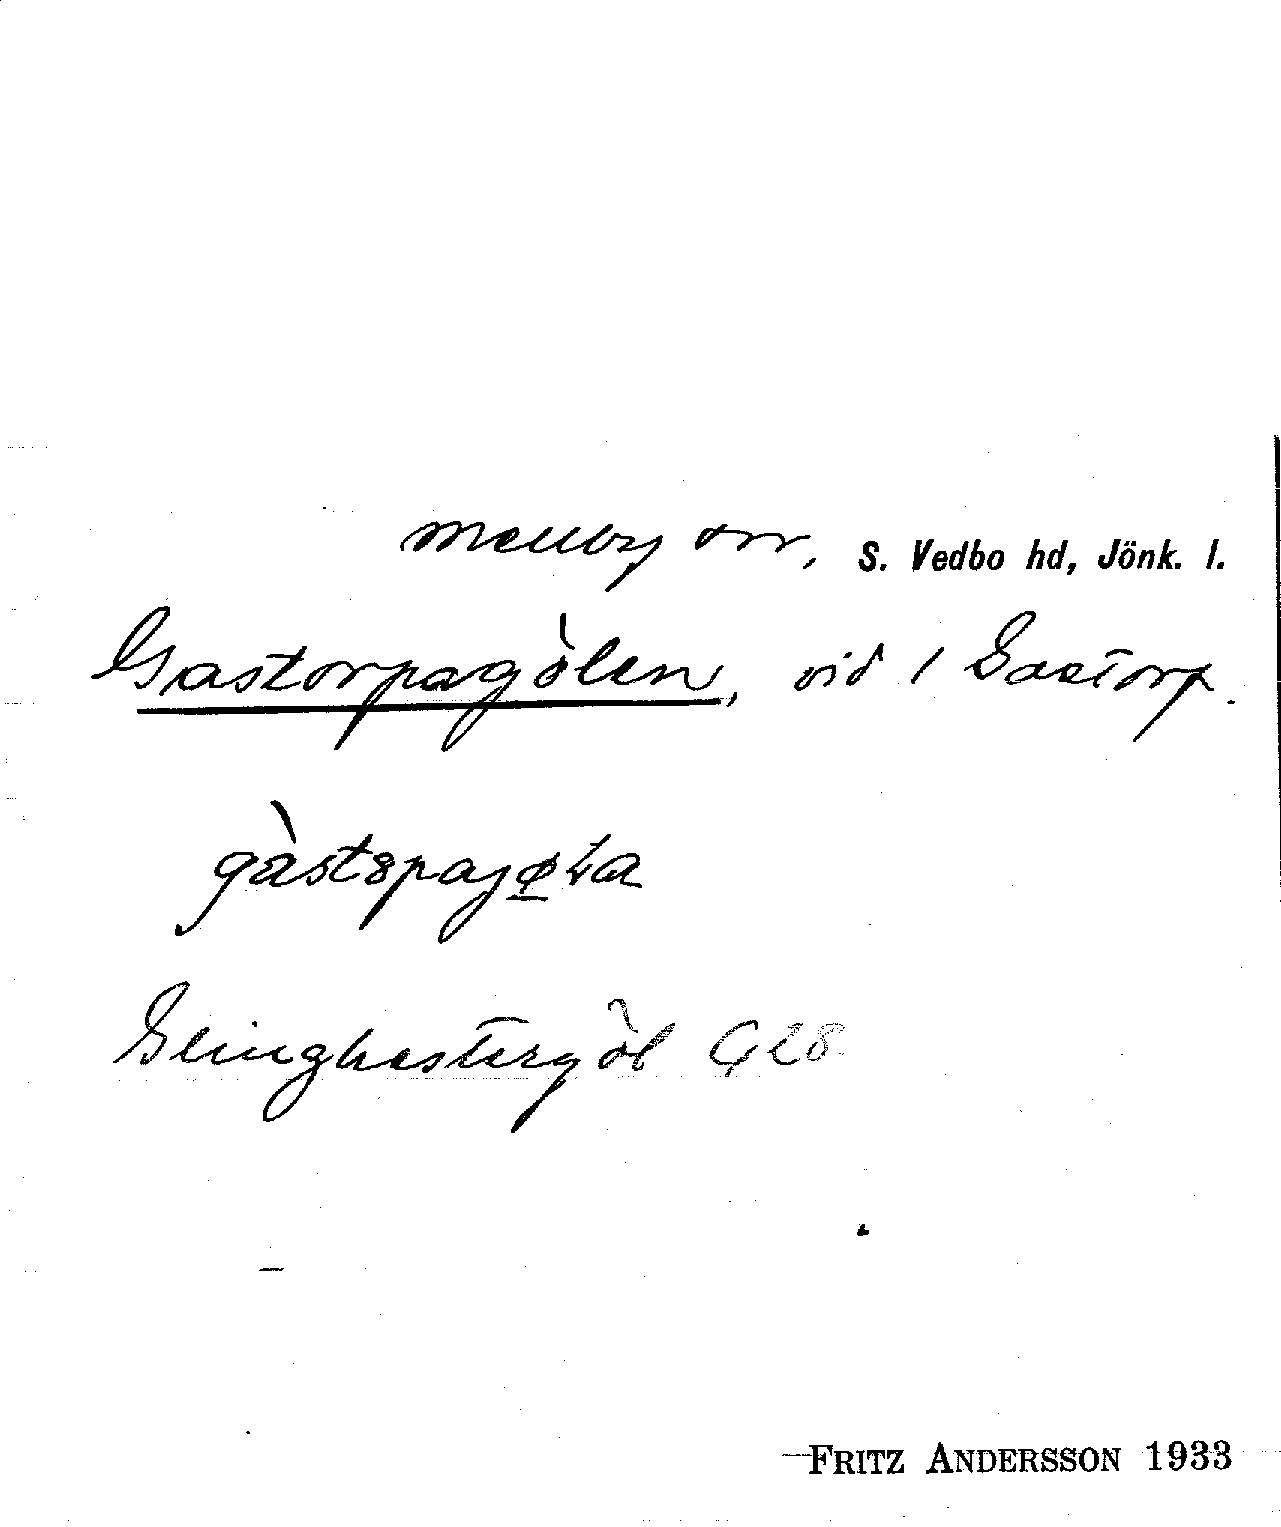 Mellby snr, S. Vedbo hd, Jönk. l.
Gastorpagölen, vid 1 Gastorp.
gàstspajøLa
Glinghestergöl G28
FRITZ ANDERSSON 1933